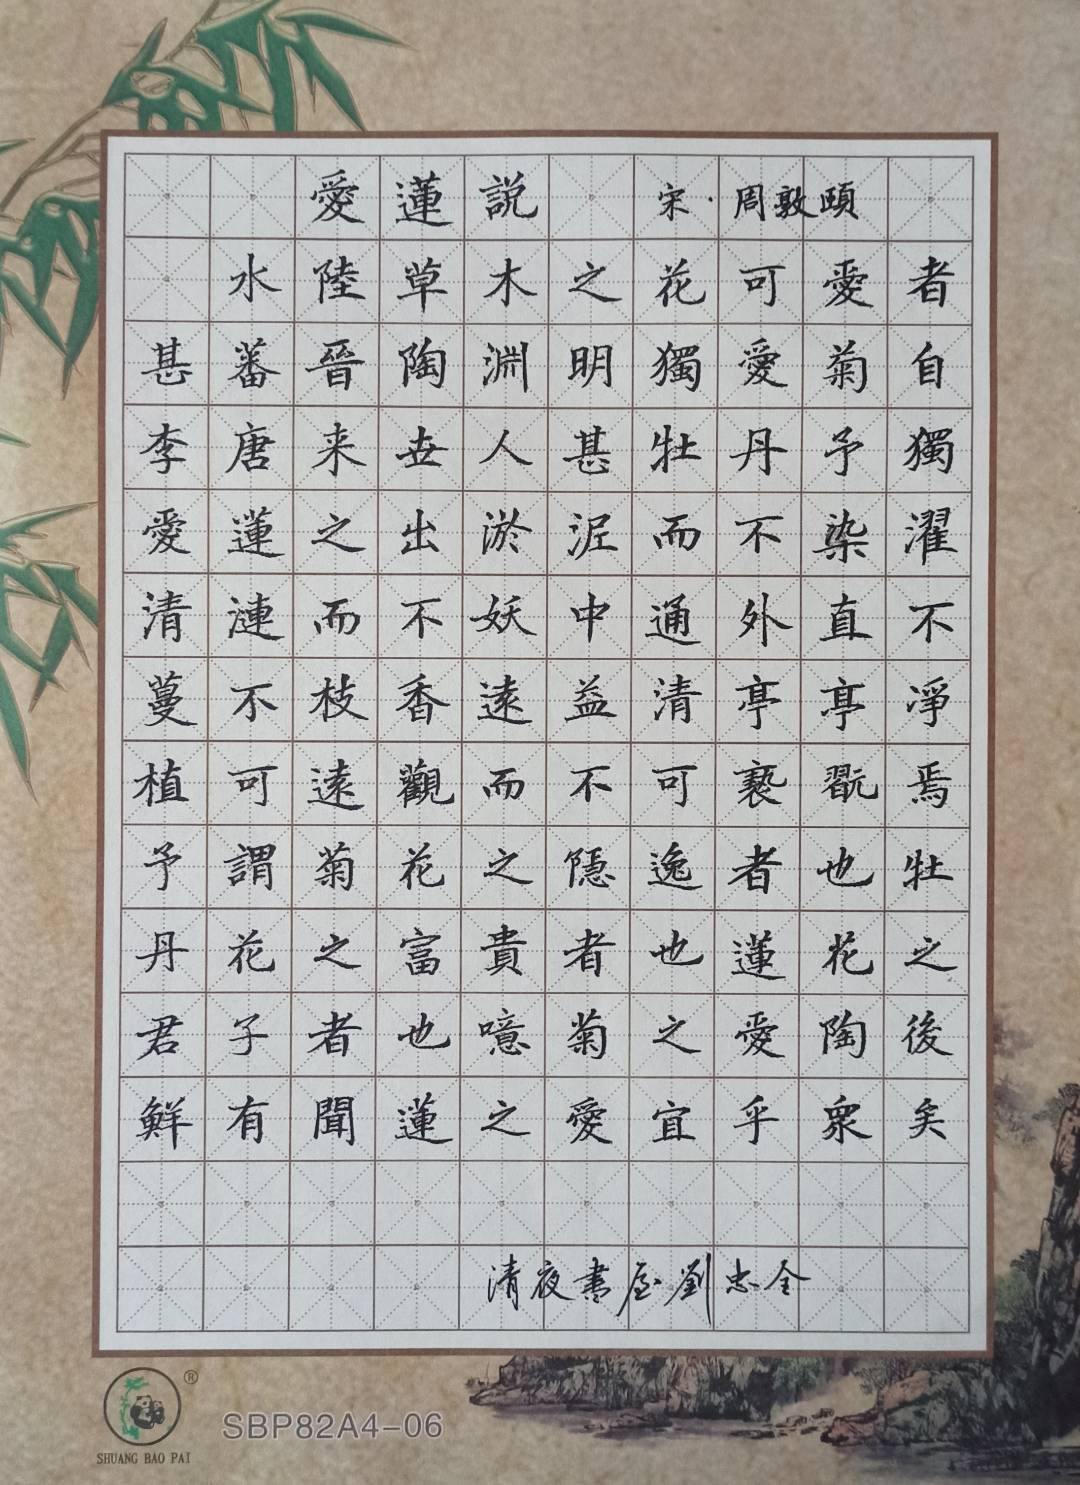 愛蓮説 宋·周敦頤
水陸草木之花可愛者
甚蕃晉陶淵明獨愛菊自
李唐来世人甚牡丹予獨
愛蓮之出淤泥而不染濯
清漣而不妖中通外直不
蔓不枝香遠益清亭亭淨
植可遠觀而不可褻翫焉
予謂菊花之隱逸者也牡
丹花之富貴者也蓮花之
君子者也噫菊之愛陶後
鮮有聞蓮之愛宜乎衆矣
清夜書屋劉忠全
®
SHUANG BAO PAI
SBP82A4-06